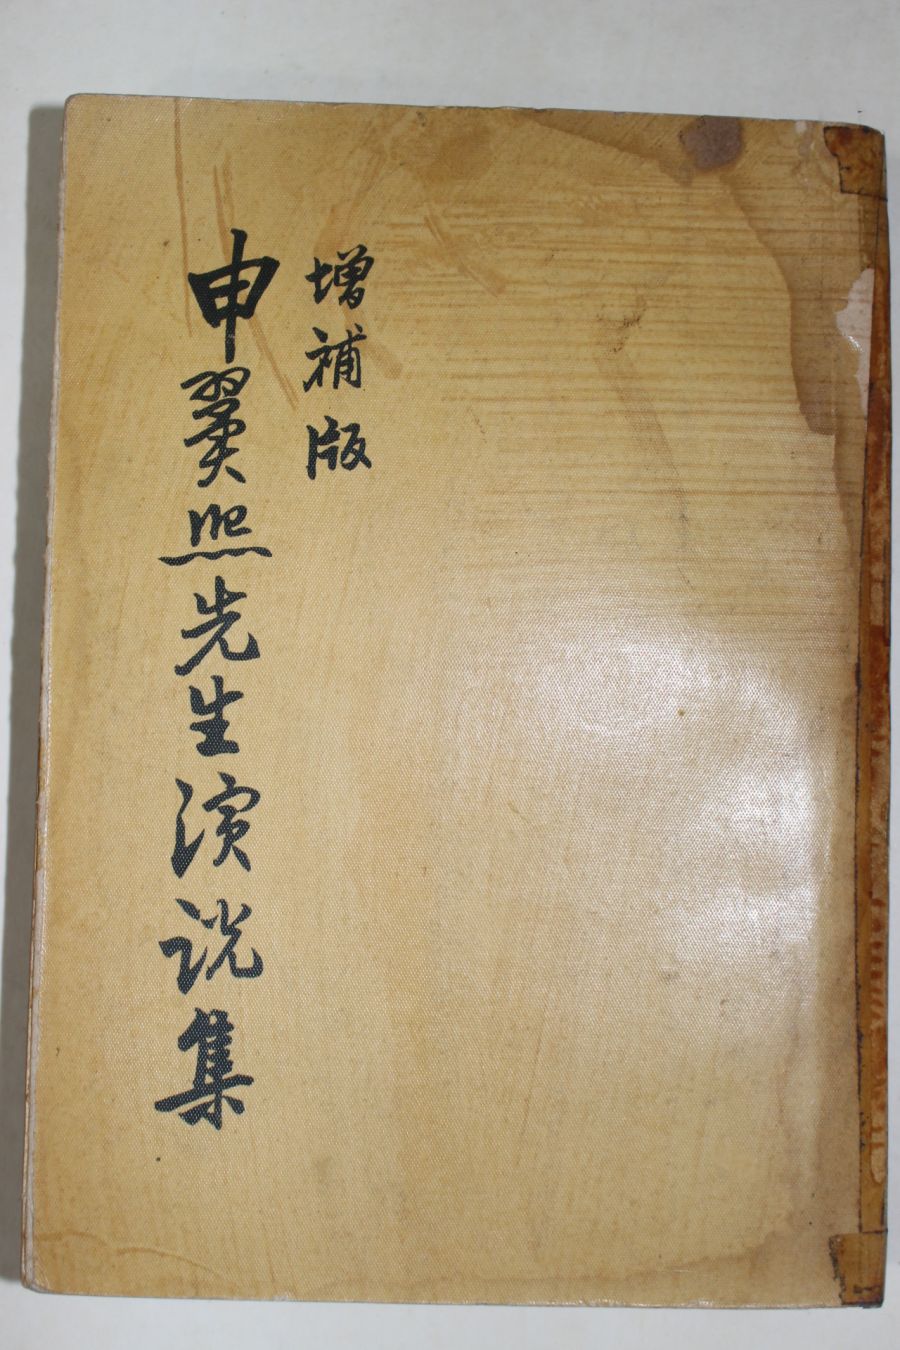 增補版
申翼熙先生演說集